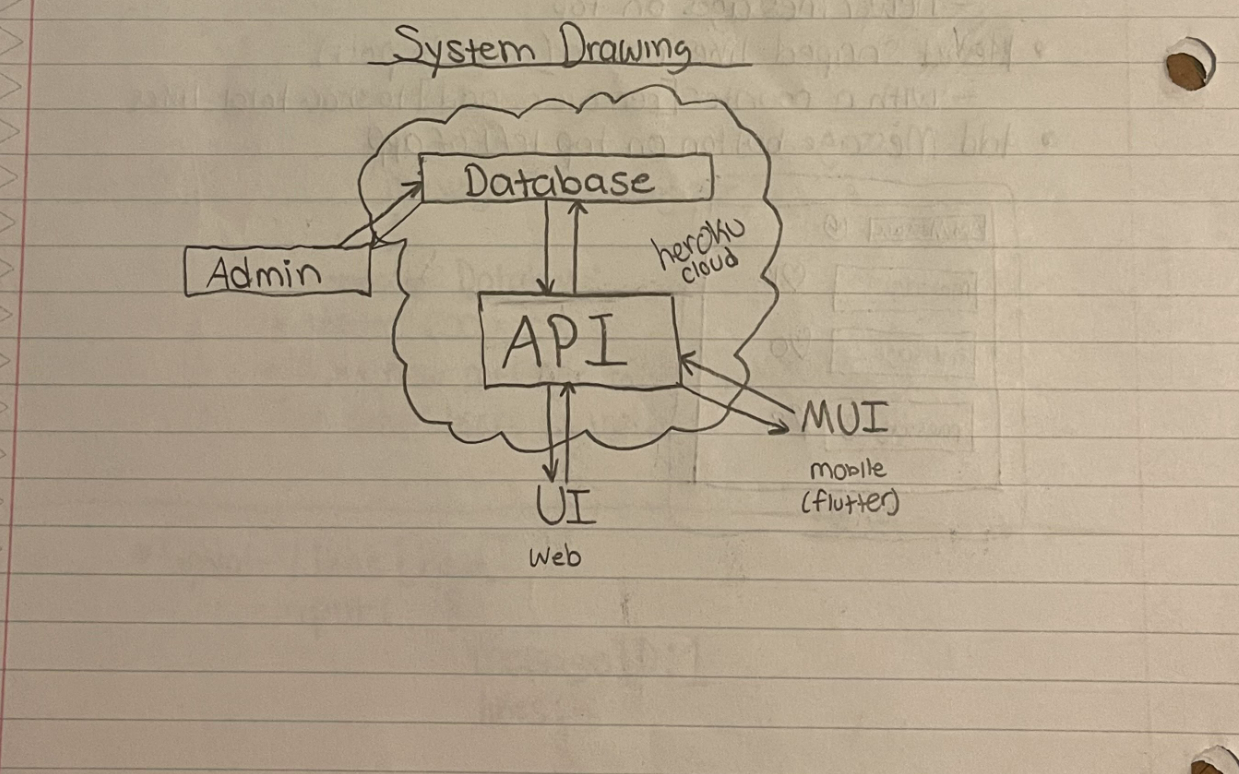 System Drawing
Database
heroku
cloud
Admin
API
MUI
mobile
(flutter)
UI
Web